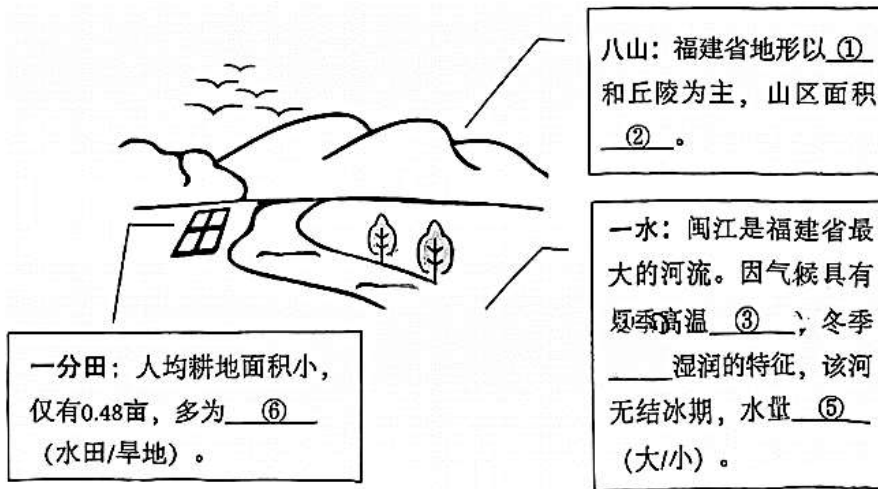 八山：福建省地形以 ①
和丘陵为主，山区面积
②。
一水：闽江是福建省最
大的河流。因气候具有
夏季高温 ③ ，冬季
____湿润的特征，该河
无结冰期，水量 ⑤
（大/小）。
一分田：人均耕地面积小，
仅有0.48亩，多为 ⑥
（水田/旱地）。